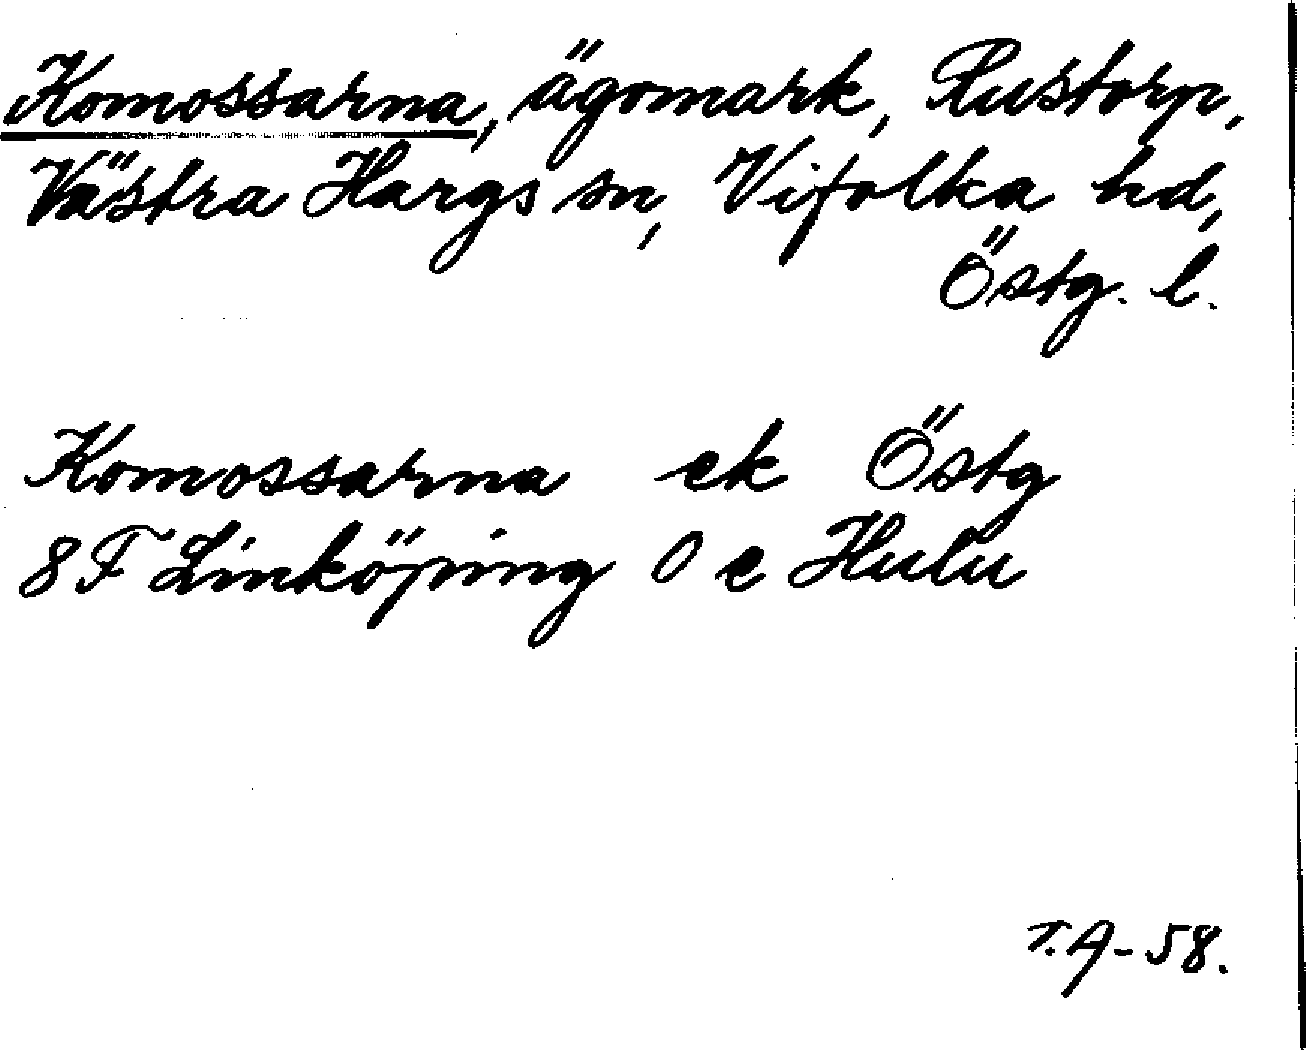 Komossarna, ägomark, Rustorp,
Västra Hargs sn, Vifolka hd,
Östg. l.
Komossarna ek Östg
8F Linköping 0 e Hulu
T.A-58.